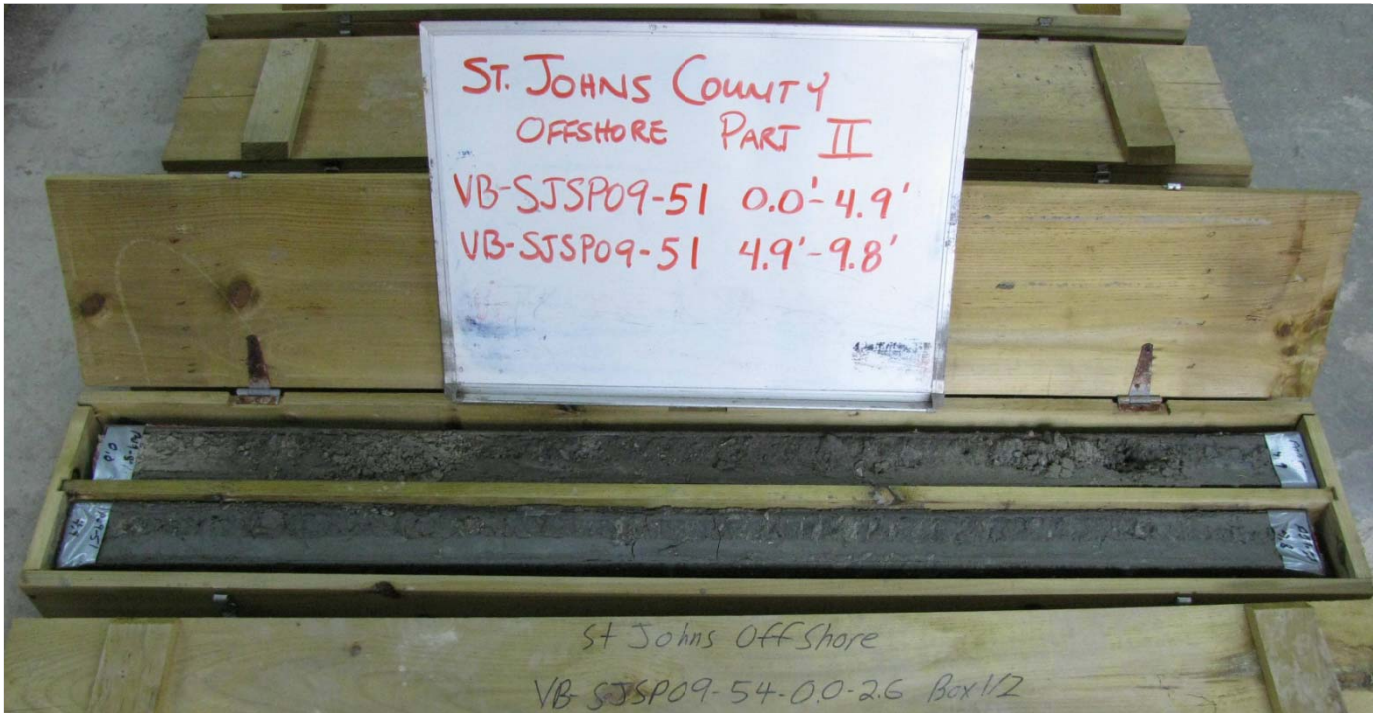 ST. JOHNS COUNTY
OFFSHORE PART II
VB-SJSP09-51 0.0'-4.9'
VB-SJSP09-51 4.9'-9.8'
0.0
4.9
St Johns OffShore
VB-SJSP09-54-0.0-2.6 Box 1/2